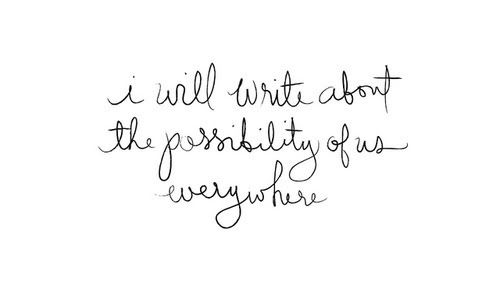 i will write about
the possibility of us
everywhere